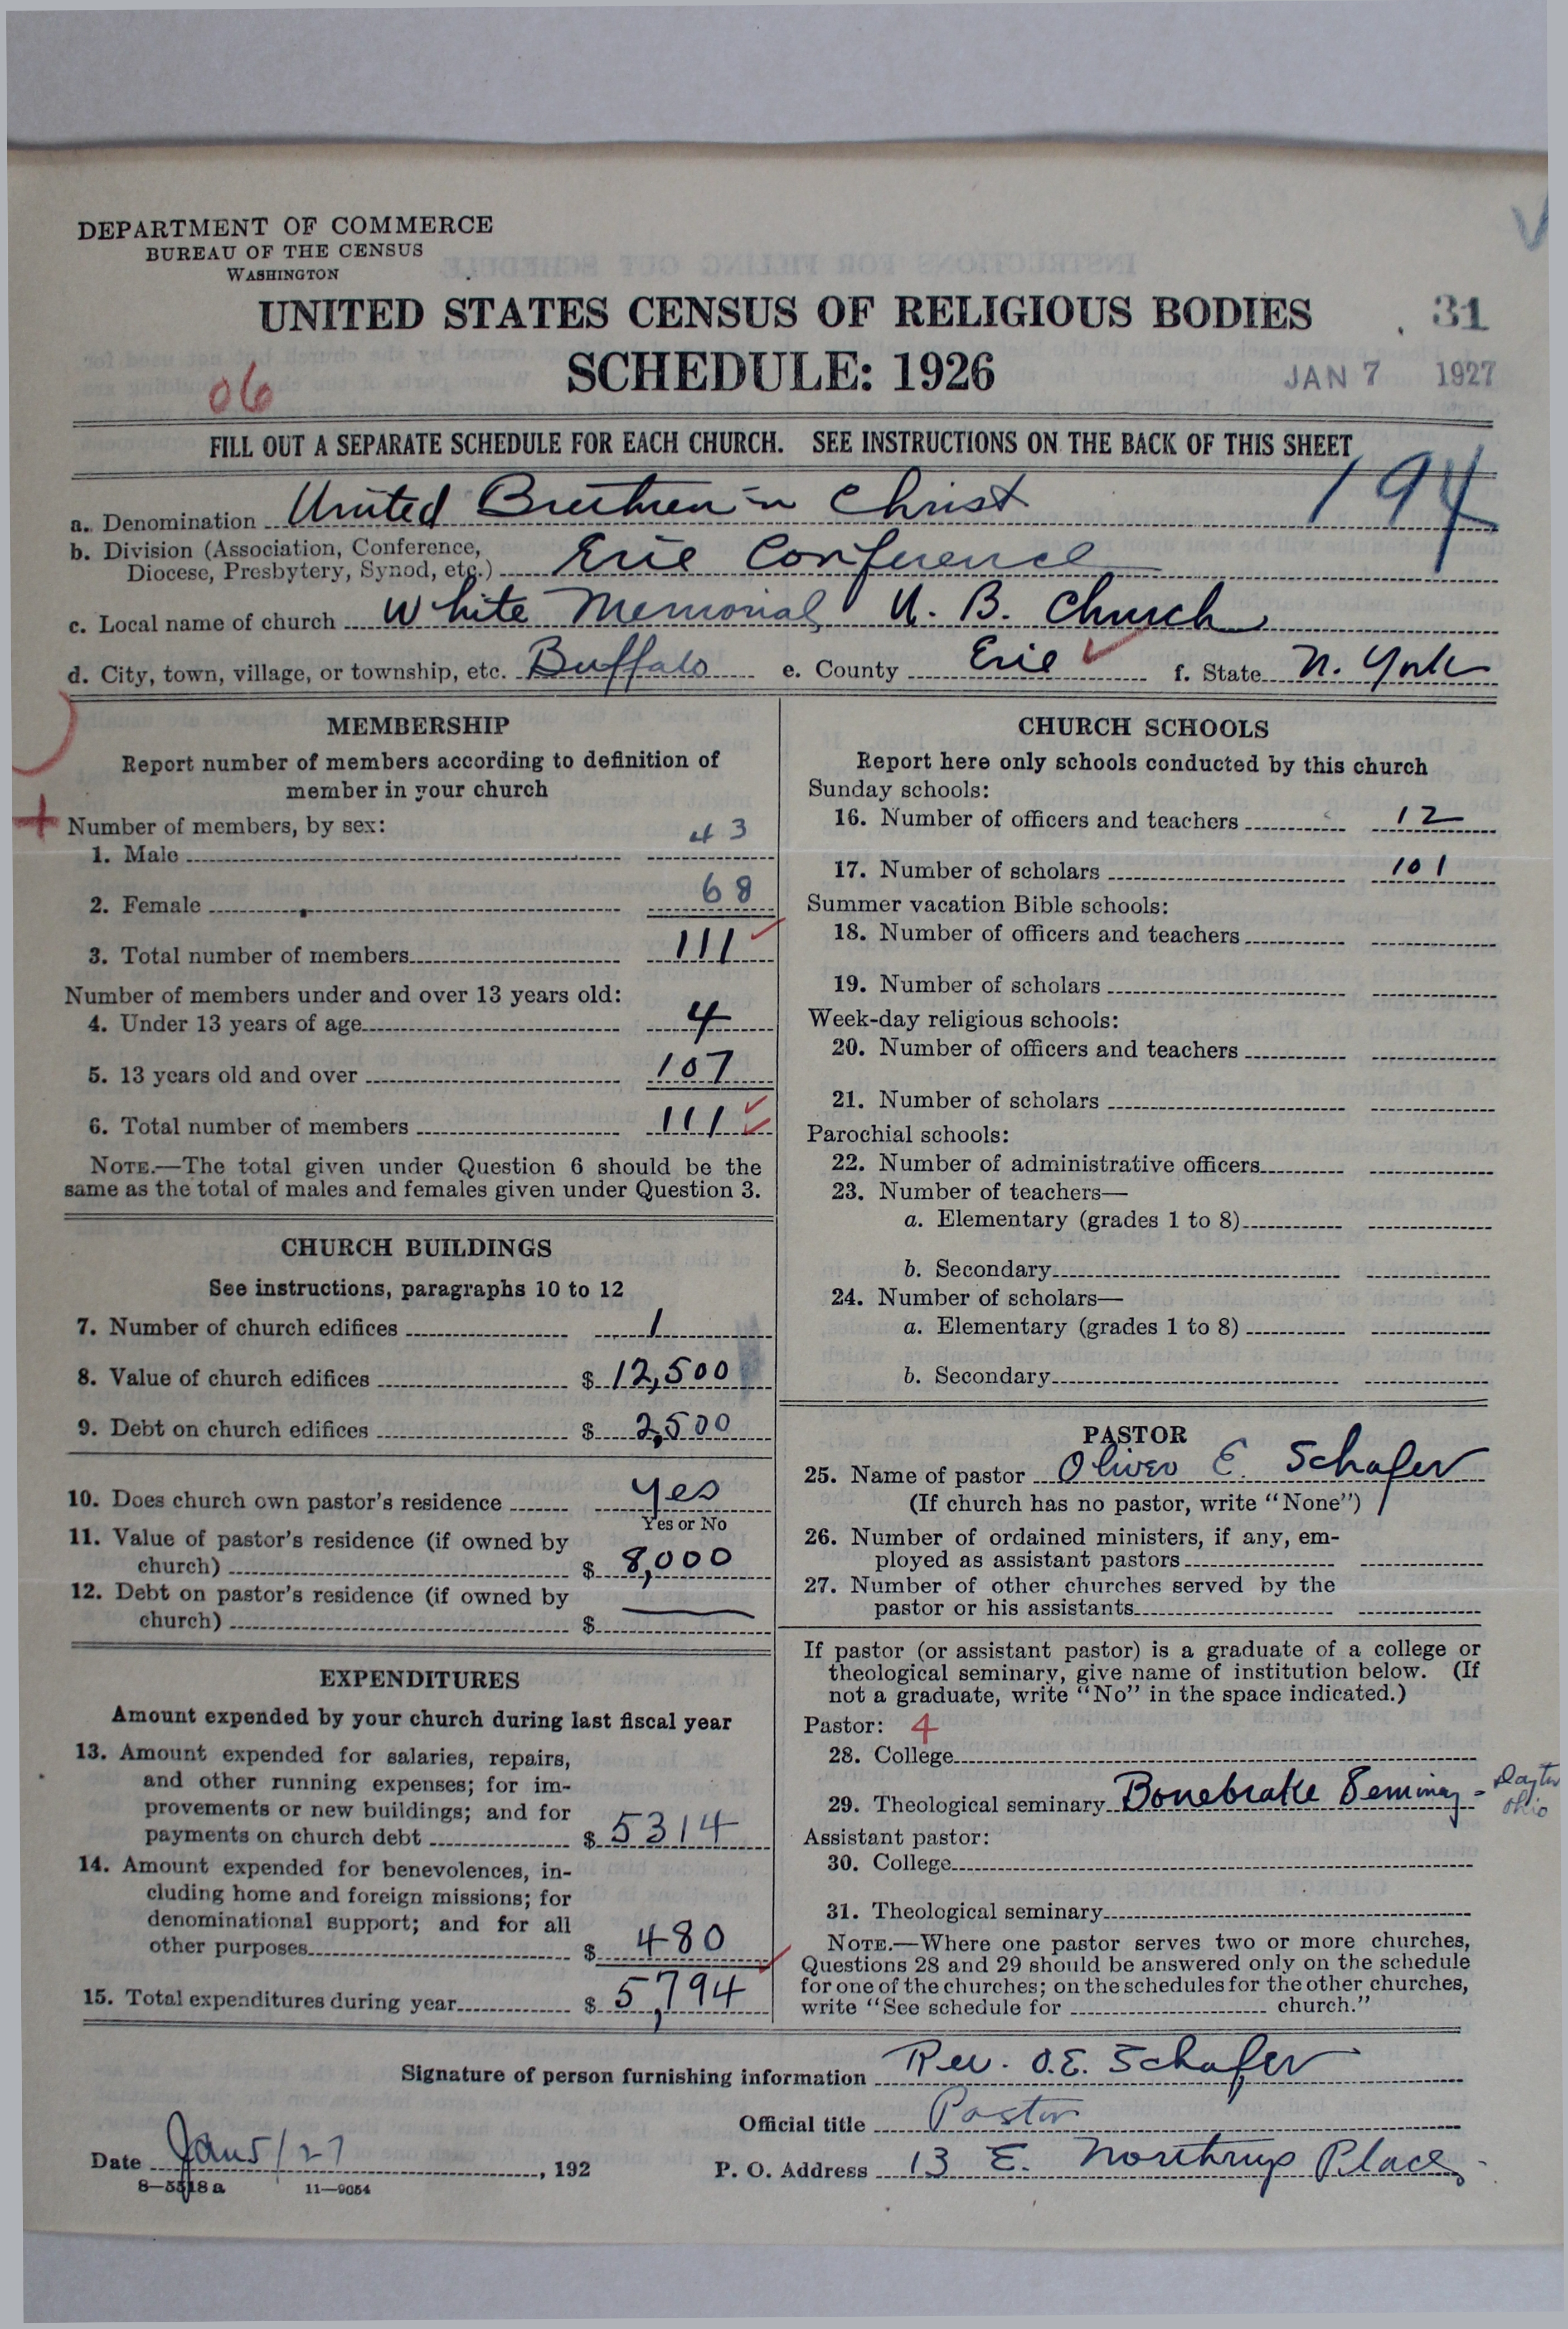 DEPARTMENT OF COMMERCE
BUREAU OF THE CENSUS
WASHINGTON
UNITED STATES CENSUS OF RELIGIOUS BODIES
31
SCHEDULE: 1926
JAN 7 1927
06
FILL OUT A SEPARATE SCHEDULE FOR EACH CHURCH. SEE INSTRUCTIONS ON THE BACK OF THIS SHEET
194
a. Denomination United Brethren in Christ
b. Division (Association, Conference,
Diocese, Presbytery, Synod, etc.) Erie Conference
c. Local name of church White Memorial U. B. Church
d. City, town, village, or township, etc. Buffalo e. County Erie f. State N. York
MEMBERSHIP
Report number of members according to definition of
member in your church
Number of members, by sex:
1. Male 43
2. Female 68
3. Total number of members 111
Number of members under and over 13 years old:
4. Under 13 years of age 4
5. 13 years old and over 107
6. Total number of members 111
NOTE.—The total given under Question 6 should be the
same as the total of males and females given under Question 3.
CHURCH BUILDINGS
See instructions, paragraphs 10 to 12
7. Number of church edifices 1
8. Value of church edifices $ 12,500
9. Debt on church edifices $ 2,500
10. Does church own pastor's residence yes
Yes or No
11. Value of pastor's residence (if owned by
church) $ 8,000
12. Debt on pastor's residence (if owned by
church) $ —
EXPENDITURES
Amount expended by your church during last fiscal year
13. Amount expended for salaries, repairs,
and other running expenses; for im-
provements or new buildings; and for
payments on church debt $ 5314
14. Amount expended for benevolences, in-
cluding home and foreign missions; for
denominational support; and for all
other purposes $ 480
15. Total expenditures during year $ 5,794
CHURCH SCHOOLS
Report here only schools conducted by this church
Sunday schools:
16. Number of officers and teachers 12
17. Number of scholars 101
Summer vacation Bible schools:
18. Number of officers and teachers
19. Number of scholars
Week-day religious schools:
20. Number of officers and teachers
21. Number of scholars
Parochial schools:
22. Number of administrative officers
23. Number of teachers—
a. Elementary (grades 1 to 8)
b. Secondary
24. Number of scholars—
a. Elementary (grades 1 to 8)
b. Secondary
PASTOR
25. Name of pastor Oliver E. Schafer
(If church has no pastor, write "None")
26. Number of ordained ministers, if any, em-
ployed as assistant pastors
27. Number of other churches served by the
pastor or his assistants
If pastor (or assistant pastor) is a graduate of a college or
theological seminary, give name of institution below. (If
not a graduate, write "No" in the space indicated.)
Pastor: 4
28. College
29. Theological seminary Bonebrake Seminary - Dayton
Ohio
Assistant pastor:
30. College
31. Theological seminary
NOTE.—Where one pastor serves two or more churches,
Questions 28 and 29 should be answered only on the schedule
for one of the churches; on the schedules for the other churches,
write "See schedule for church."
Signature of person furnishing information Rev. O.E. Schafer
Official title Pastor
Date Jan 5/27, 192
P. O. Address 13 E. Northrup Place
8—5518 a 11—9054